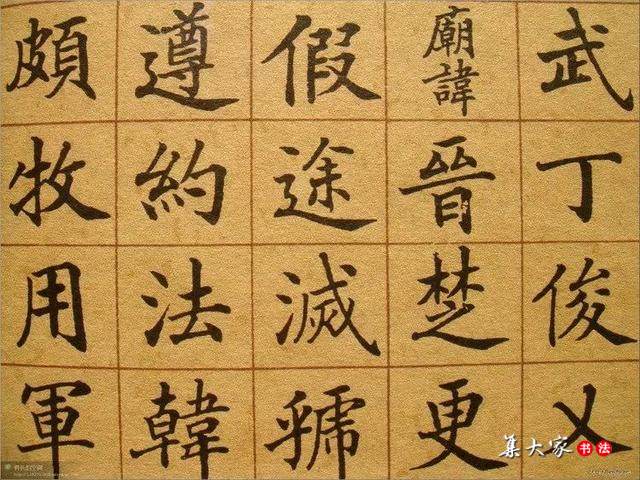 武丁俊乂
廟諱晉楚更
假途滅虢
遵約法韓
頗牧用軍
集大家书法